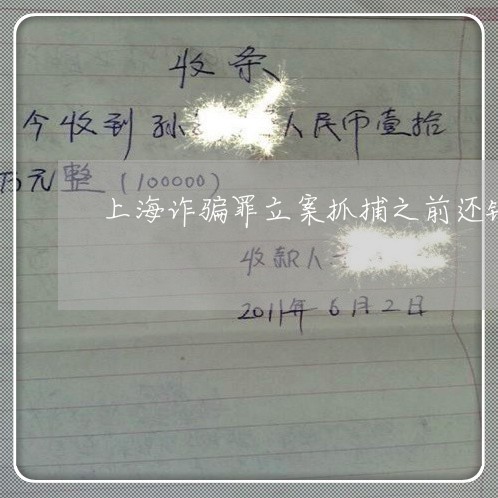 收条
今收到孙 人民币壹拾
万元整（100000）
上海诈骗罪立案抓捕之前还钱
收款人
2011年6月2日